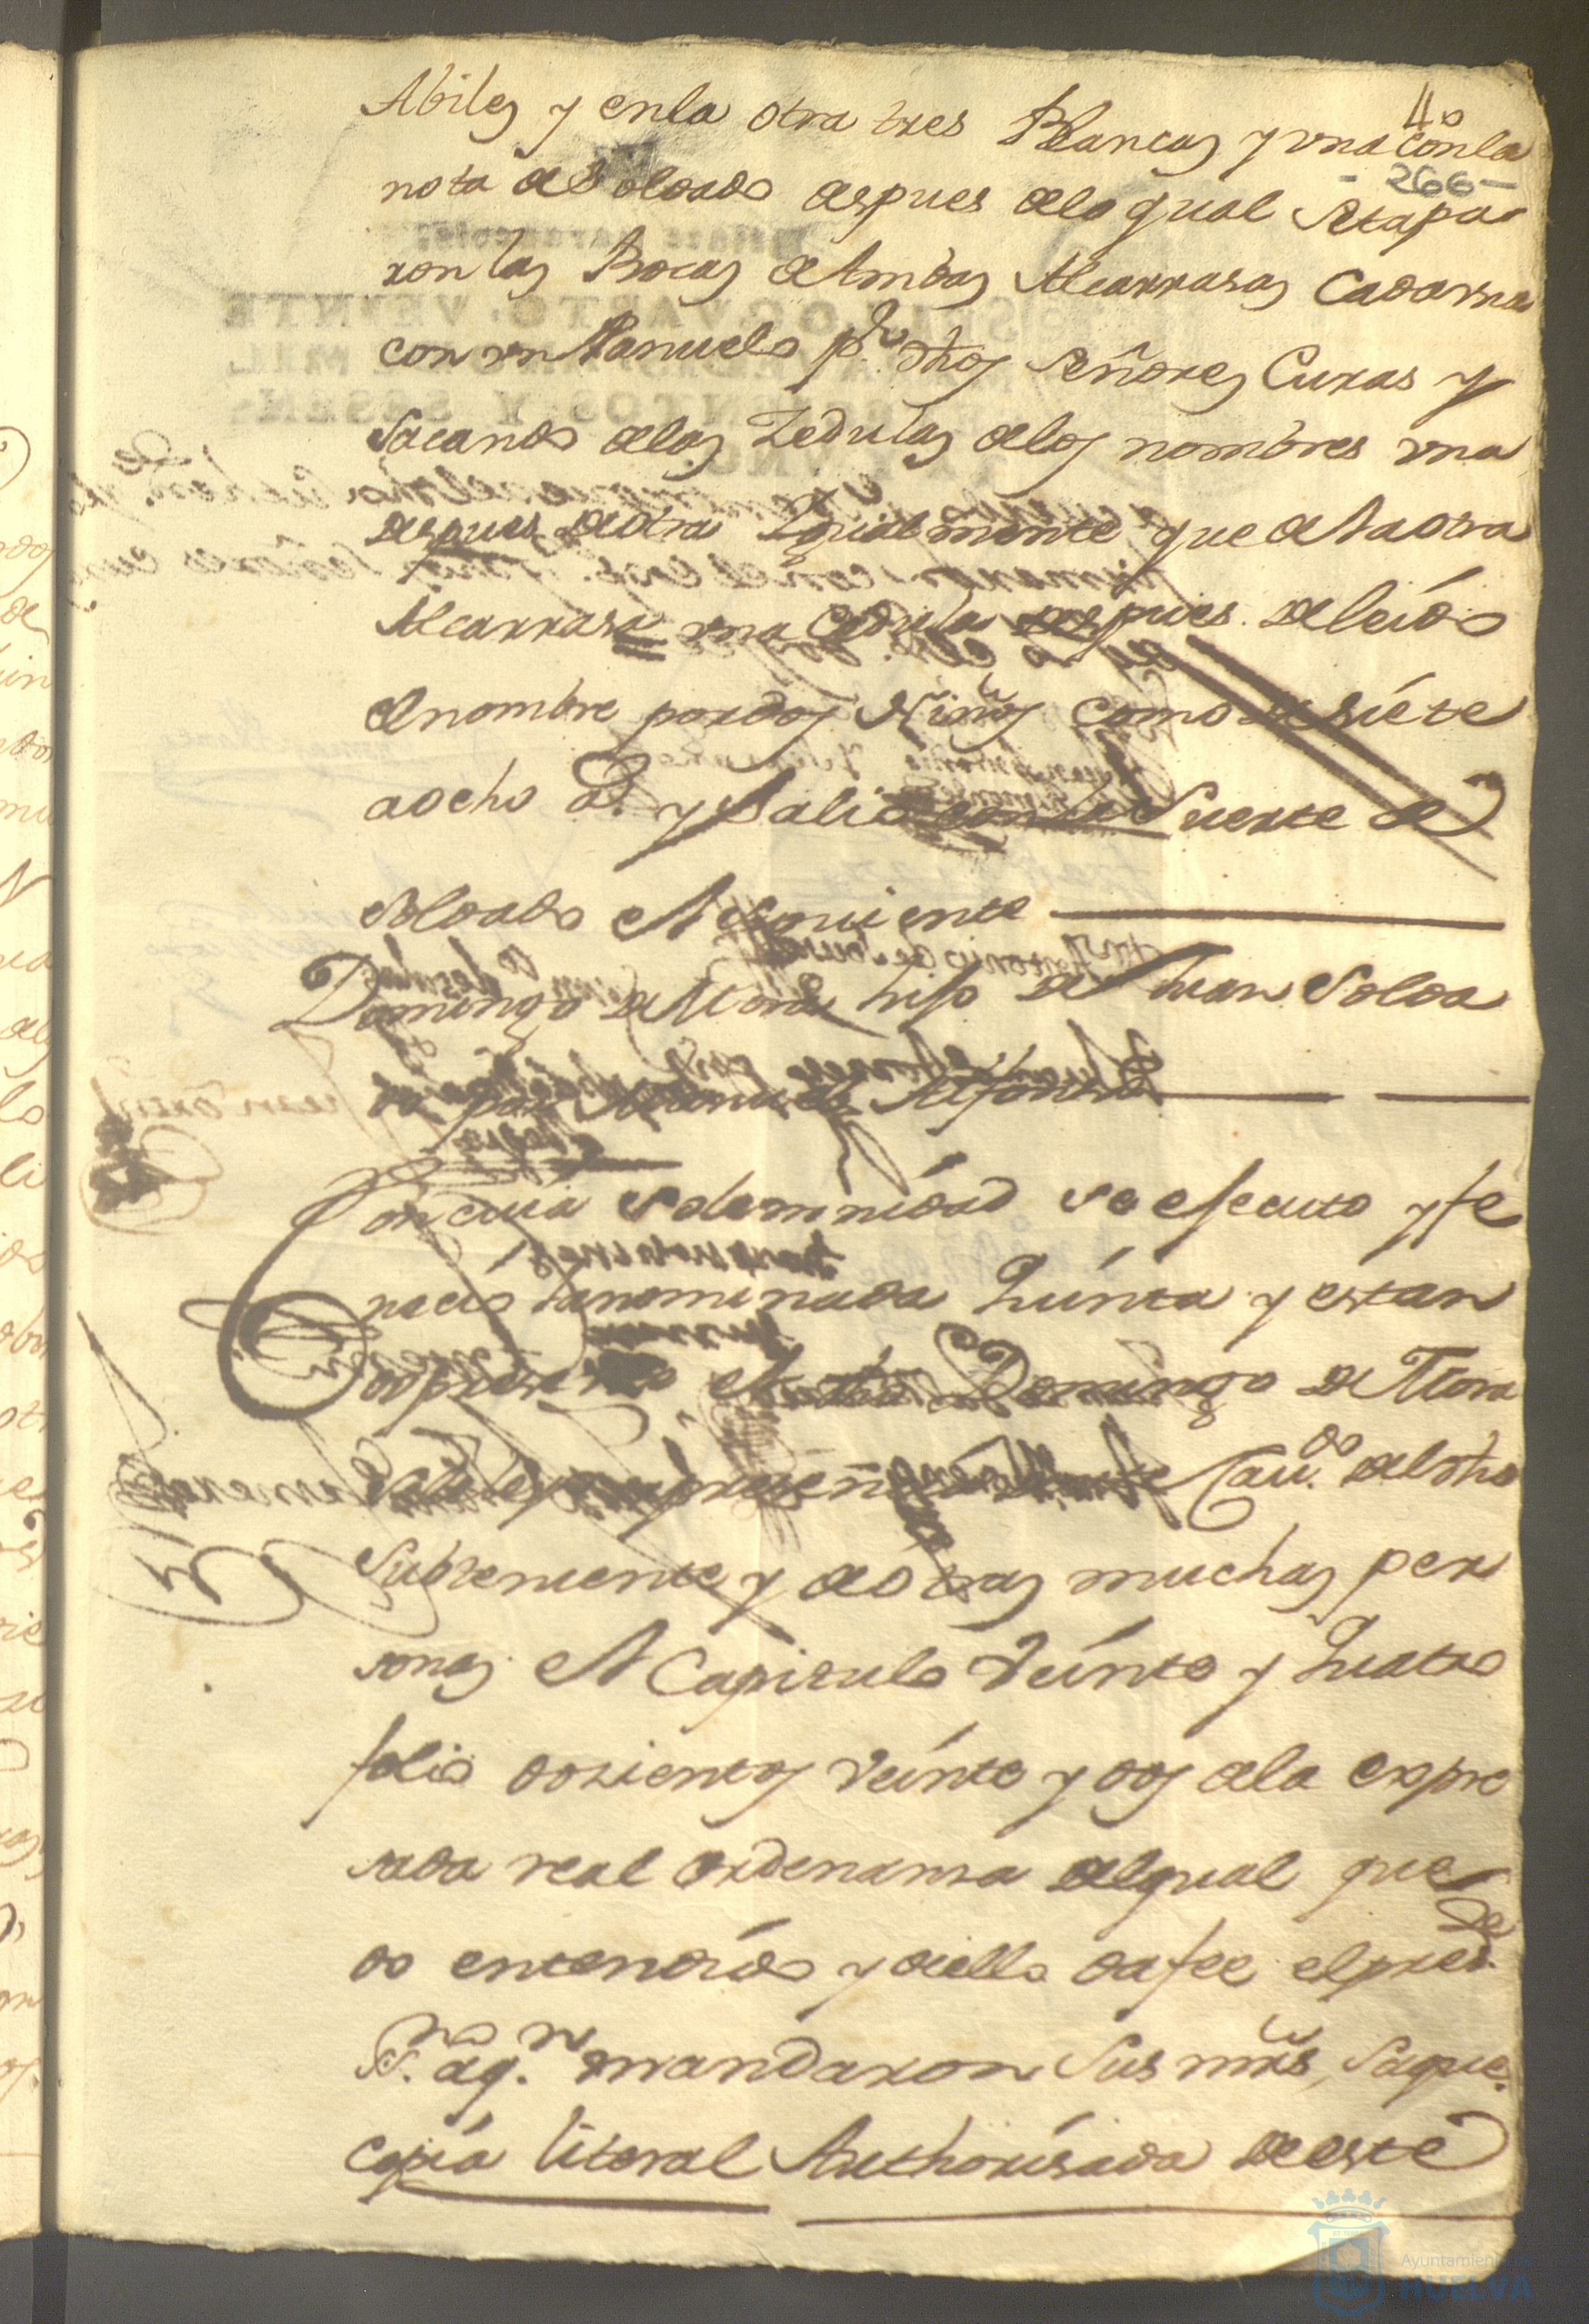 Abiles y enla otra tres Blancas y vna conla
4o
-266-
nota de Soldado despues delo qual setapa
ron las Bocas de Ambas Alcarrasas Cada vna
con un Panuelo pr. dhos Señores Curas y
Sacando delas Zedulas delos nombres vna
despues de otra Igualmente que de la otra
Alcarrasa vna Cedula despues de leido
el nombre por dos Niños como de siete
a ocho as. y Salio con la Suerte de
soldado el siguiente
Domingo de Mora hijo de Juan Solda
do por Alfonso
Con cuia solemnidad se efecuto y fe
necio la nominada Quinta y estan
do presente el dho Domingo de Mora
Cavdo. del dho
Subteniente y de otras muchas per
sonas el Capitulo Veinte y Quatro
folio dozientos veinte y dos dela expre
sada real ordenansa del qual que
do entendido y de ello da fee el predo.
mandaron Sus mrds, Saque
copia literal Authorisada de este
Ayuntamiento de
HUELVA